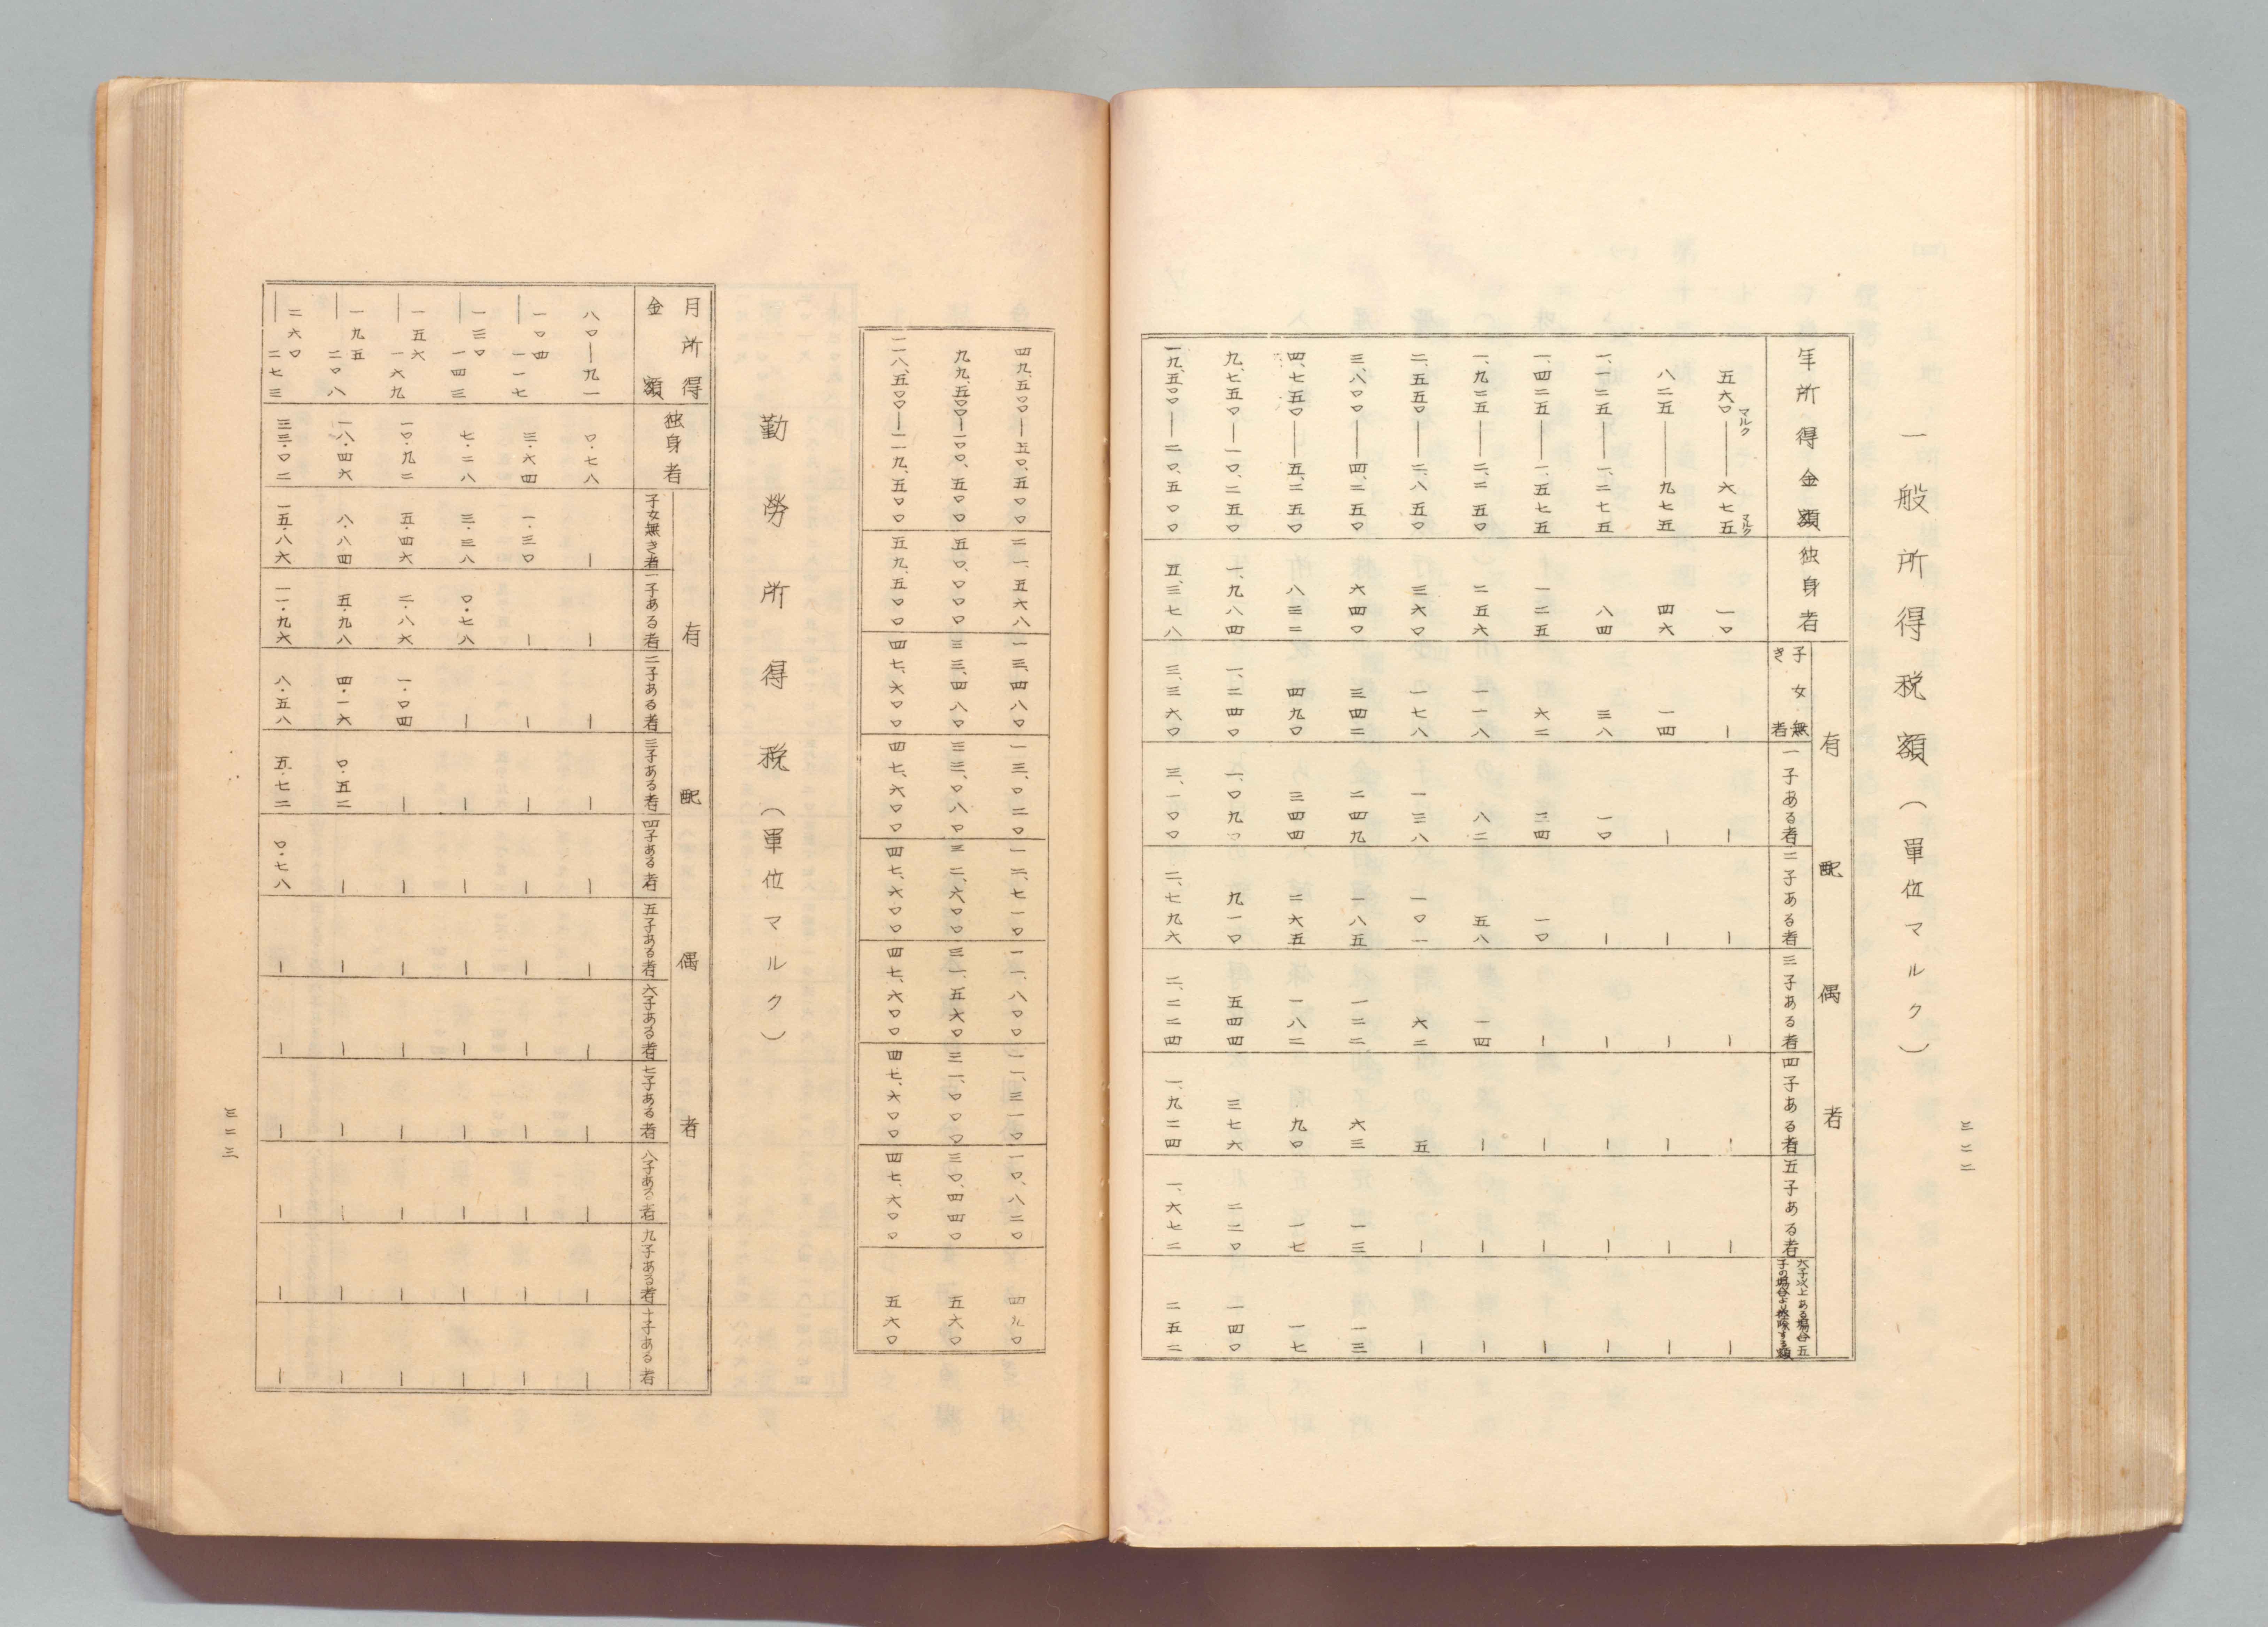 三二二
一般所得税額(單位マルク)
有配偶者
年所得金額 独身者 子女無き者 一子ある者 二子ある者 三子ある者 四子ある者 五子ある者 六子以上ある場合五子の場合より控除する額
五六〇マルク——六七五マルク 一〇 | | | | | | |
八二五——九七五 四六 一四 | | | | | |
一、一二五——一、二七五 八四 三八 一〇 | | | | |
一、四二五——一、五七五 一二五 六二 三四 一〇 | | | |
一、九二五——二、二五〇 二五六 一一八 八二 五八 一四 | | |
二、五五〇——二、八五〇 三六〇 一七八 一三八 一〇一 六二 五 | |
三、八〇〇——四、二五〇 六四〇 三四二 二四九 一八五 一二二 六三 一三 一三
四、七五〇——五、二五〇 八三二 四九〇 三四四 二六五 一八二 九〇 一七 一七
九、七五〇——一〇、二五〇 一、九八四 一、二四〇 一、〇九〇 九一〇 五四四 三七六 二二〇 一四〇
一九、五〇〇——二〇、五〇〇 五、三七八 三、三六〇 三、一〇〇 二、七九六 二、二二四 一、九二四 一、六七二 二五二
四九、五〇〇——五〇、五〇〇 二一、五六八 一三、四八〇 一三、〇二〇 一二、七一〇 一一、八〇〇 一一、三一〇 一〇、八二〇 四九〇
九九、五〇〇——一〇〇、五〇〇 五〇、〇〇〇 三三、四八〇 三三、〇八〇 三二、六〇〇 三一、五六〇 三一、〇〇〇 三〇、四四〇 五六〇
一一八、五〇〇——一一九、五〇〇 五九、五〇〇 四七、六〇〇 四七、六〇〇 四七、六〇〇 四七、六〇〇 四七、六〇〇 四七、六〇〇 五六〇
勤勞所得税(單位マルク)
有配偶者
月所得金額 独身者 子女無き者 一子ある者 二子ある者 三子ある者 四子ある者 五子ある者 六子ある者 七子ある者 八子ある者 九子ある者 十子ある者
八〇—九一 〇・七八 | | | | | | | | | | |
一〇四—一一七 三・六四 一・三〇 | | | | | | | | | |
一三〇—一四三 七・二八 三・三八 〇・七八 | | | | | | | | |
一五六—一六九 一〇・九二 五・四六 二・八六 一・〇四 | | | | | | | |
一九五—二〇八 一八・四六 八・八四 五・九八 四・一六 〇・五二 | | | | | | |
二六〇—二七三 三三・〇二 一五・八六 一一・九六 八・五八 五・七二 〇・七八 | | | | | |
三二三